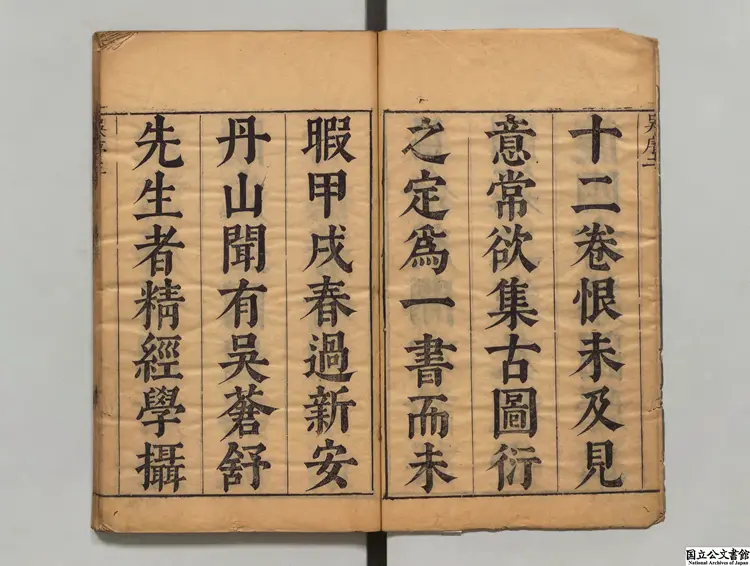 十二卷恨未及見
意常欲集古圖衍
之定為一書而未
暇甲戌春過新安
丹山聞有吳蒼舒
先生者精經學攝
国立公文書館
National Archives of Japan